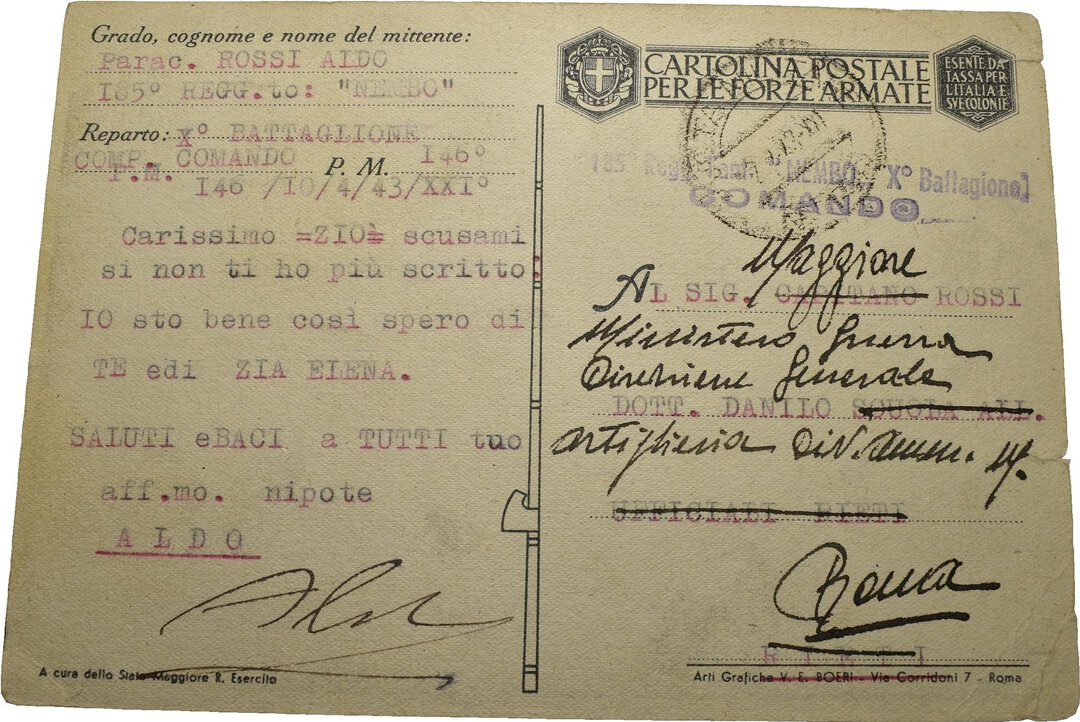 Grado, cognome e nome del mittente:
Parac. ROSSI ALDO
185º REGG.to: "NEMBO"
Reparto: Xº BATTAGLIONE
COMP. COMANDO 146º
P. M.
P.M. 146 /10/4/43/XXIº
Carissimo =ZIO= scusami
si non ti ho più scritto:
IO sto bene così spero di
TE edi ZIA ELENA.
SALUTI eBACI a TUTTI tuo
aff.mo. nipote
ALDO
Aldo
A cura dello Stato Maggiore R. Esercito
CARTOLINA POSTALE
PER LE FORZE ARMATE
ESENTE DA
TASSA PER
L'ITALIA E
SVE COLONIE
185º Regg. Fant. "NEMBO„ Xº Battaglione
COMANDO
Maggiore
AL SIG. CAPITANO ROSSI
Ministero Guerra
Direzione Generale
DOTT. DANILO SCUOLA ALL.
Artiglieria
UFFICIALI RIETI
Roma
RIETI
Arti Grafiche V. E. BOERI - Via Corridoni 7 - Roma